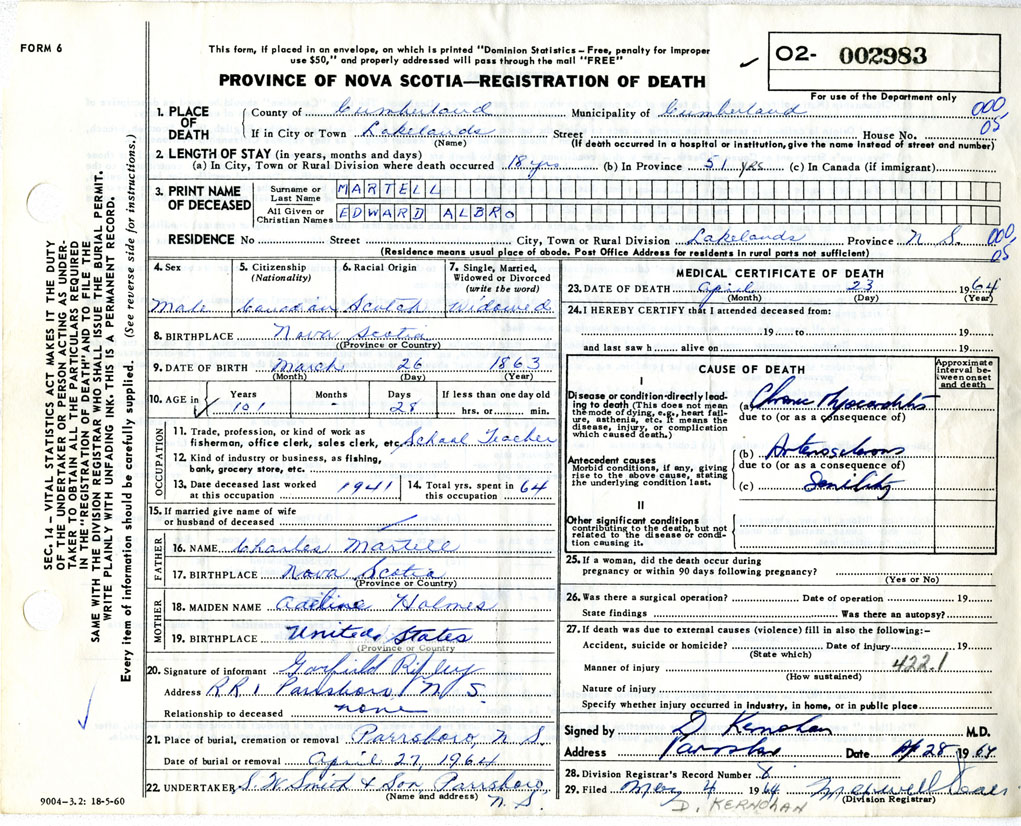 FORM 6
This form, if placed in an envelope, on which is printed "Dominion Statistics – Free, penalty for improper
use $50," and properly addressed will pass through the mail "FREE"
O2- 002983
For use of the Department only
PROVINCE OF NOVA SCOTIA—REGISTRATION OF DEATH
1. PLACE OF DEATH
County of Cumberland Municipality of Cumberland 000
If in City or Town Lakelands Street House No. 05
(Name) (If death occurred in a hospital or institution, give the name instead of street and number)
2. LENGTH OF STAY (in years, months and days)
(a) In City, Town or Rural Division where death occurred 18 yrs (b) In Province 51 yrs (c) In Canada (if immigrant)
3. PRINT NAME OF DECEASED
Surname or Last Name MARTELL
All Given or Christian Names EDWARD ALBRO
RESIDENCE No Street City, Town or Rural Division Lakelands Province N S. 000
(Residence means usual place of abode. Post Office Address for residents in rural parts not sufficient) 05
4. Sex
Male
5. Citizenship
(Nationality)
Canadian
6. Racial Origin
Scotch
7. Single, Married,
Widowed or Divorced
(write the word)
Widowed
8. BIRTHPLACE Nova Scotia
(Province or Country)
9. DATE OF BIRTH March 26 1863
(Month) (Day) (Year)
10. AGE in Years Months Days If less than one day old
101 - 28 hrs. or min.
OCCUPATION
11. Trade, profession, or kind of work as
fisherman, office clerk, sales clerk, etc. School Teacher
12. Kind of industry or business, as fishing,
bank, grocery store, etc.
13. Date deceased last worked
at this occupation 1941
14. Total yrs. spent in
this occupation 64
15. If married give name of wife
or husband of deceased
FATHER
16. NAME Charles Martell
17. BIRTHPLACE Nova Scotia
(Province or Country)
MOTHER
18. MAIDEN NAME Adeline Holmes
19. BIRTHPLACE United States
(Province or Country
20. Signature of informant Garfield Ripley
Address R.R. 1 Parrsboro N S.
Relationship to deceased none
21. Place of burial, cremation or removal Parrsboro, N S.
Date of burial or removal April 27, 1964
22. UNDERTAKER S. W Smith & Son, Parrsboro,
(Name and address) N S.
9004–3.2: 18-5-60
MEDICAL CERTIFICATE OF DEATH
23. DATE OF DEATH April 23 1964
(Month) (Day) (Year)
24. I HEREBY CERTIFY that I attended deceased from:
19 to 19
and last saw h alive on 19
CAUSE OF DEATH
Approximate
interval be-
tween onset
and death
I
Disease or condition directly lead-
ing to death (This does not mean
the mode of dying, e.g., heart fail-
ure, asthenia, etc. It means the
disease, injury, or complication
which caused death.)
(a) Chronic Myocarditis
due to (or as a consequence of)
Antecedent causes
Morbid conditions, if any, giving
rise to the above cause, stating
the underlying condition last.
(b) Arterosclerosis
due to (or as a consequence of)
(c) Senility
II
Other significant conditions
contributing to the death, but not
related to the disease or condi-
tion causing it.
25. If a woman, did the death occur during
pregnancy or within 90 days following pregnancy?
(Yes or No)
26. Was there a surgical operation? Date of operation 19
State findings Was there an autopsy?
27. If death was due to external causes (violence) fill in also the following:–
Accident, suicide or homicide? Date of injury 19
(State which) 422.1
Manner of injury
(How sustained)
Nature of injury
Specify whether injury occurred in industry, in home, or in public place
Signed by D Kernohan M.D.
Address Parrsboro Date Ap 28 1964
28. Division Registrar's Record Number 8
29. Filed May 4 1964
(Division Registrar)
D. KERNOHAN
SEC. 14 – VITAL STATISTICS ACT MAKES IT THE DUTY
OF THE UNDERTAKER OR PERSON ACTING AS UNDER-
TAKER TO OBTAIN ALL THE PARTICULARS REQUIRED
IN THE "REGISTRATION OF DEATH" AND TO FILE THE
SAME WITH THE DIVISION REGISTRAR WHO SHALL ISSUE THE BURIAL PERMIT.
WRITE PLAINLY WITH UNFADING INK. THIS IS A PERMANENT RECORD.
Every item of information should be carefully supplied. (See reverse side for instructions.)